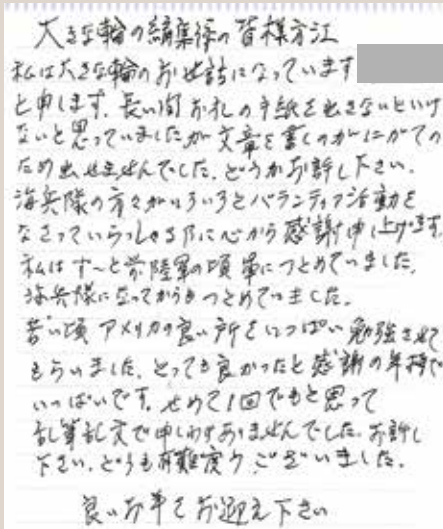 大きな輪の編集係の皆様方江
私は大きな輪のお世話になっています
と申します。長い間お礼の手紙を出さないといけ
ないと思っていましたが文章を書くのがにがての
ため出せませんでした。どうかお許し下さい。
海兵隊の方々がいろいろとバランティア活動を
なさっていらっしゃる事に心から感謝申し上げます。
私はず〜と前陸軍の頃軍につとめていました。
海兵隊になってからもつとめていました。
若い頃アメリカの良い所をいっぱい勉強させて
もらいました。とっても良かったと感謝の気持で
いっぱいです。せめて1回でもと思って
乱筆乱文で申しわけありませんでした。お許し
下さい。どうも有難度うございました。
良いお年をお迎え下さい